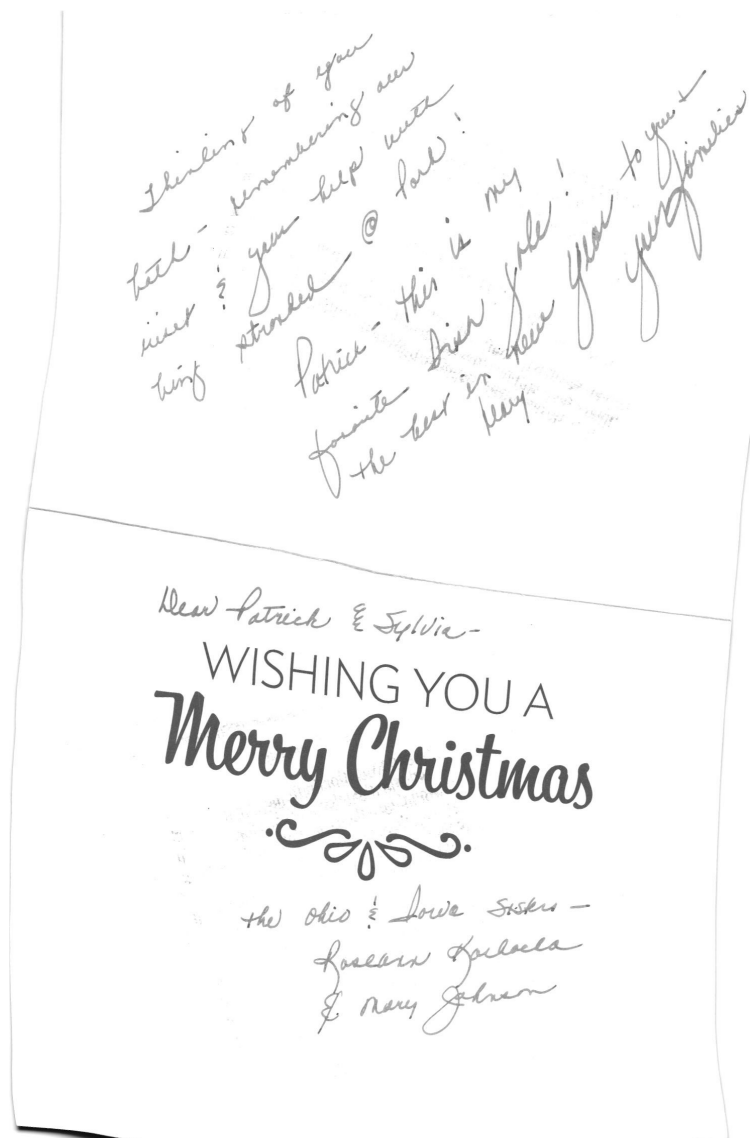 Thinking of you
both - remembering our
visit & your help with
being stranded @ Park!
Patrick - this is my
favorite Irish joke!
the best in new year to you +
your families
Mary
Dear Patrick & Sylvia -
WISHING YOU A
Merry Christmas
the Ohio & Iowa sisters -
Roseann
& Mary Johnson